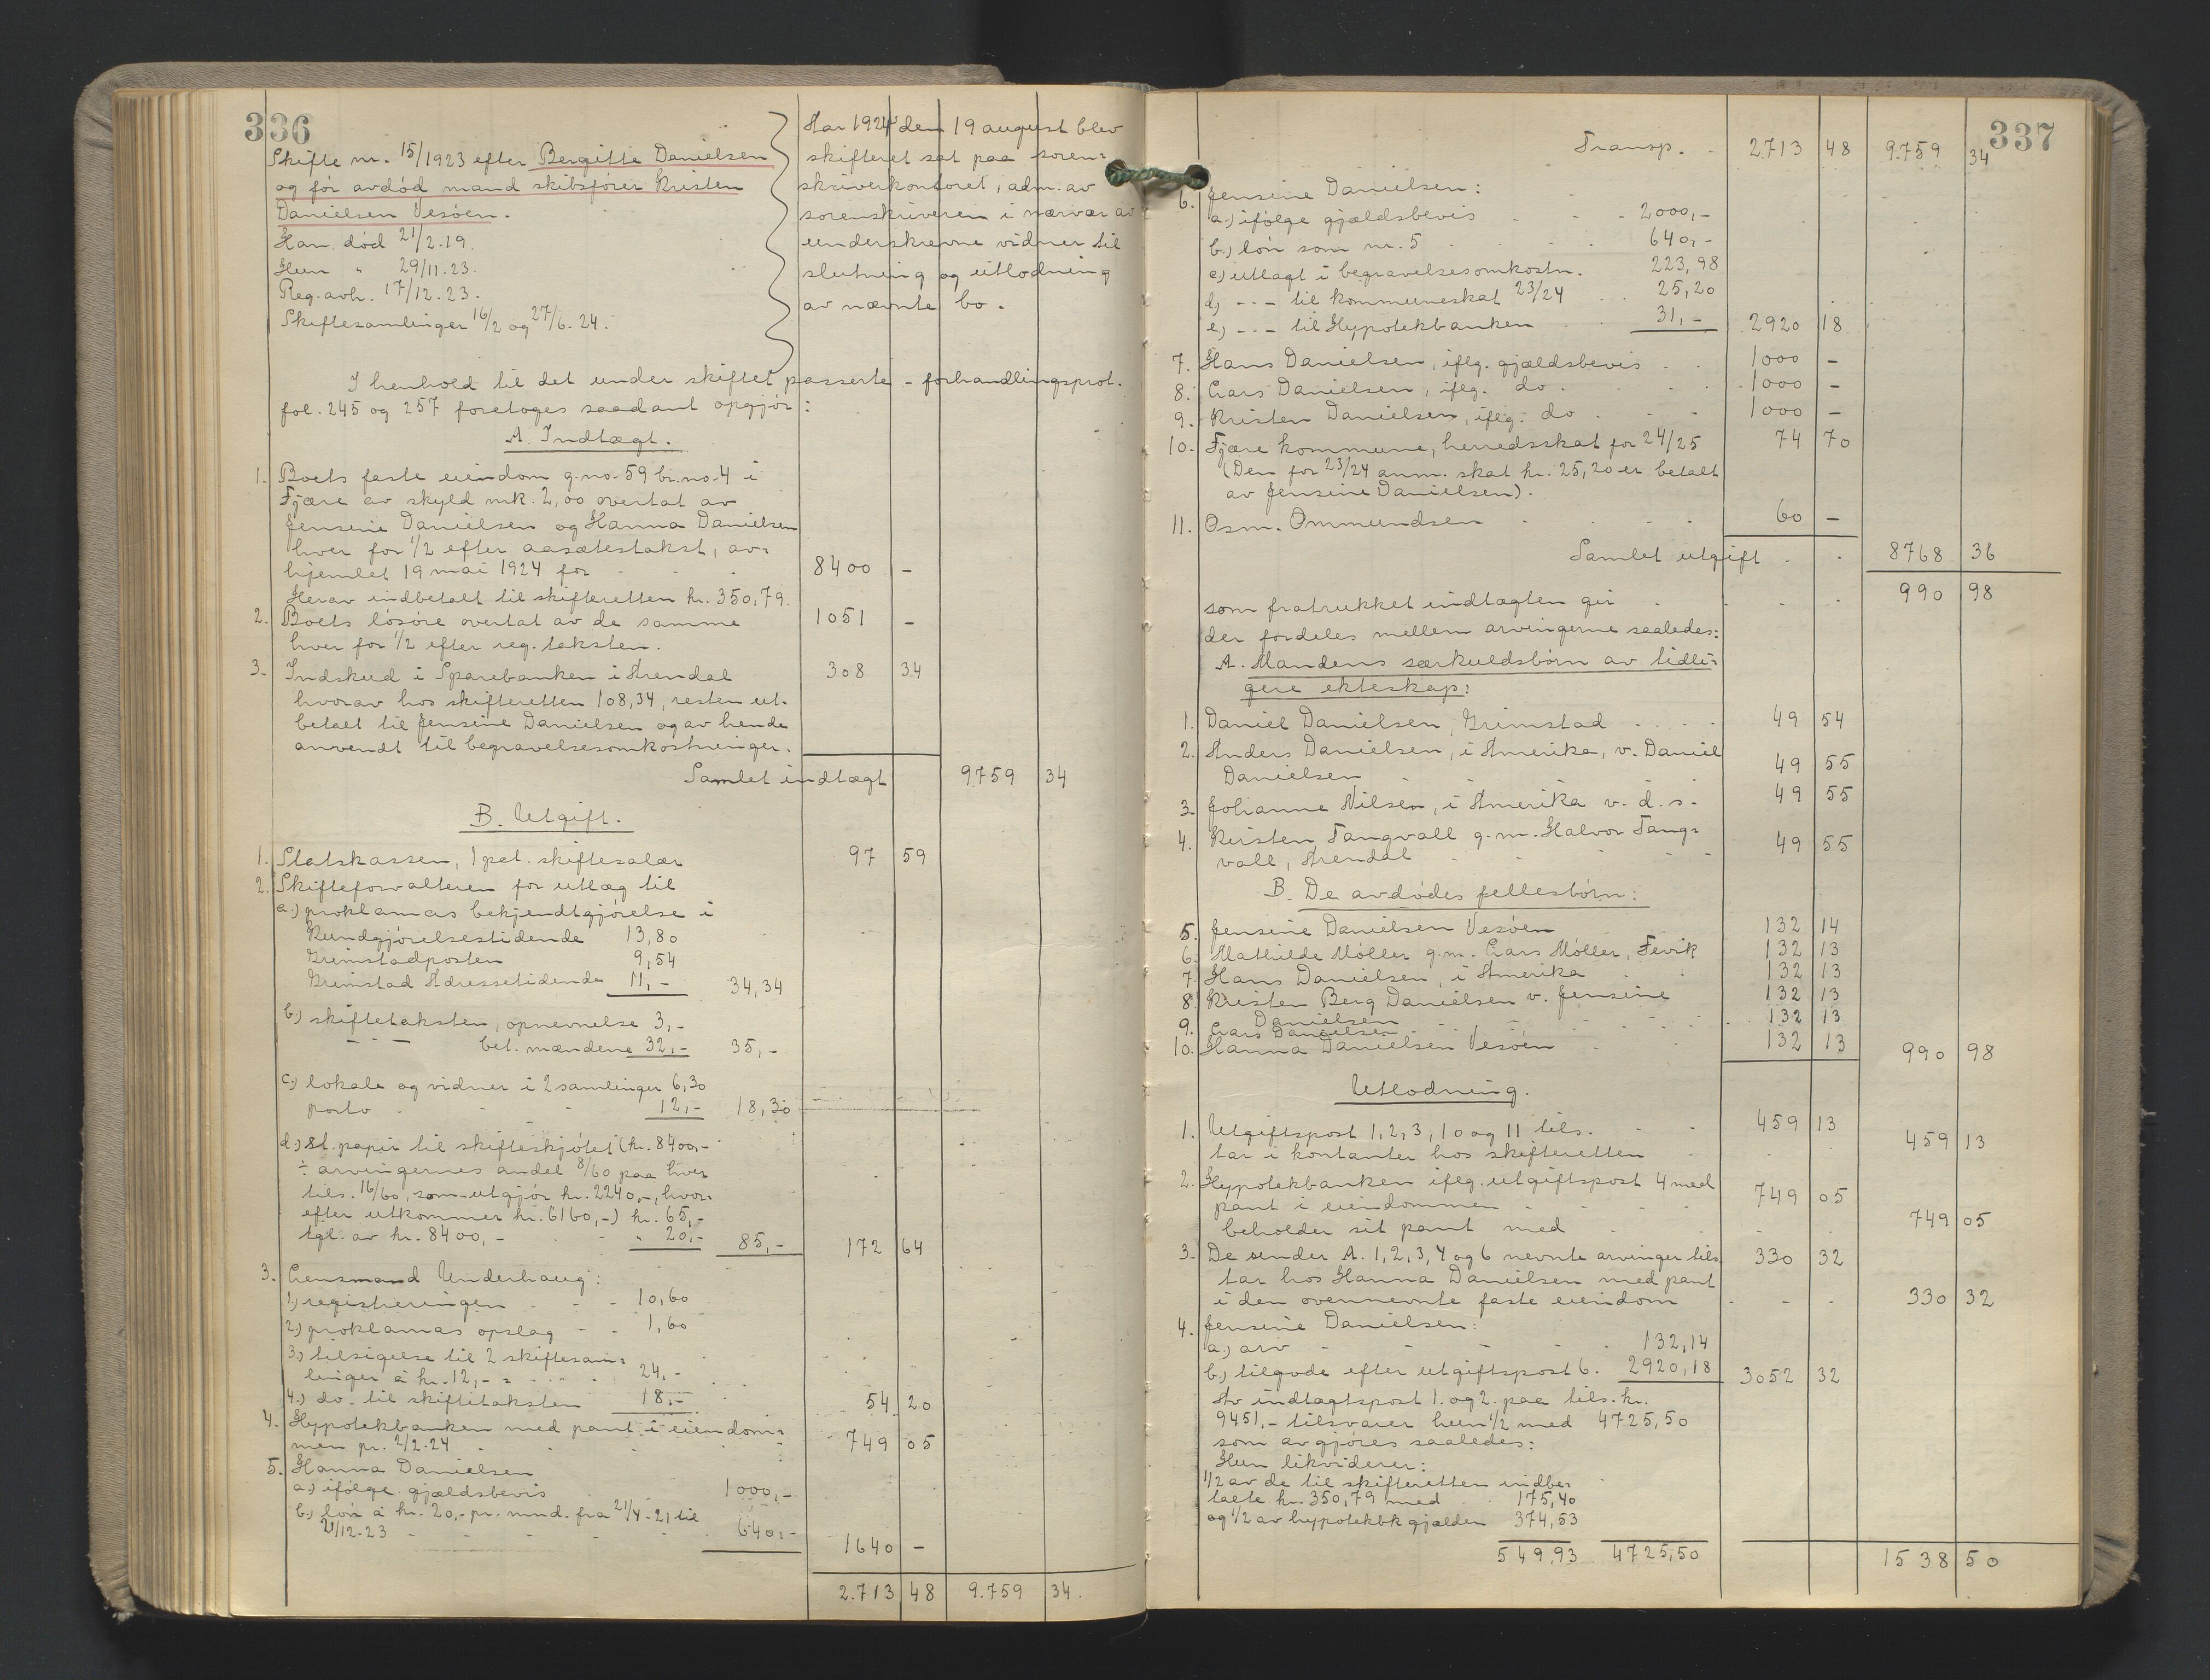 336
Skifte nr. 15/1923 efter Bergitte Danielsen
og før avdød mand skibsfører Kristen
Danielsen Vesøen.
Han død 21/2.19.
Hun " 29/11.23.
Reg. avh. 17/12.23.
Skiftesamlinger 16/2 og 27/6.24.
Aar 1924 den 19 august blev
skifteret sat paa soren=
skriverkontoret, adm. av
sorenskriveren i nærvær av
underskrevne vidner til
slutning og utlodning
av nævnte bo.
I henhold til det under skiftet passerte - forhandlingsprot.
fol. 245 og 257 foretoges saadant opgjør:
A. Indtægt.
1. Boets faste eiendom g.no. 59 br.no. 4 i
Fjære av skyld mk. 2,00 overtat av
Jensine Danielsen og Hanna Danielsen
hver for 1/2 efter aasætestakst, av=
hjemlet 19 mai 1924 for 8400 -
Herav indbetalt til skifteretten kr. 350,79.
2. Boets løsøre overtat av de samme 1051 -
hver for 1/2 efter reg. taksten.
3. Indskud i Sparebanken i Arendal 308 34
hvorav hos skifteretten 108,34, resten ut-
betalt til Jensine Danielsen og av hende
anvendt til begravelsesomkostninger.
Samlet indtægt 9759 34
B. Utgift.
1. Statskassen, 1 pct. skiftesalær 97 59
2. Skifteforvalteren for utlæg til
a.) proklamas bekjendtgjørelse i
Kundgjørelsestidende 13,80
Grimstadposten 9,54
Grimstad Adressetidende 11,- 34,34
b.) skiftetaksten, opnevnelse 3,-
- - - bet. mændene 32,- 35,-
c.) lokale og vidner i 2 samlinger 6,30
porto 12,- 18,30
d.) st. papir til skifteskjøtet (kr. 8400,-
÷ arvingernes andel 8/60 paa hver
tils. 16/60, som utgjør kr. 2240,-, hvor=
efter utkommer kr. 6160,-) kr. 65,-
tgl. av kr. 8400,- " 20,- 85,- 172 64
3. Lensmand Underhaug:
1.) registreringen 10,60
2.) proklamas opslag 1,60
3.) tilsigelse til 2 skiftesam=
linger à kr. 12,- = 24,-
4.) do. til skiftetaksten 18,- 54 20
4. Hypotekbanken med pant i eiendom=
men pr. 2/2-24 749 05
5. Hanna Danielsen
a.) ifølge gjældsbevis 1000,-
b.) løn à kr. 20,- pr. mnd. fra 21/4-21 til
21/12-23 640,- 1640 -
2.713 48 9.759 34.
337
Transp. 2.713 48 9.759 34
6. Jensine Danielsen:
a.) ifølge gjældsbevis 2000,-
b.) løn som nr. 5 640,-
c.) utlagt i begravelsesomkostn. 223,98
d.) - - - til kommuneskat 23/24 25,20
e.) - - - til Hypotekbanken 31,- 2920 18
7. Hans Danielsen, iflg. gjældsbevis 1000 -
8. Lars Danielsen, iflg. do. 1000 -
9. Kristen Danielsen, iflg. do 1000 -
10. Fjære kommune, herredsskat for 24/25 74 70
(Den for 23/24 anm. skat kr. 25,20 er betalt
av Jensine Danielsen).
11. Osm. Ommundsen 60 -
Samlet utgift 8768 36
som fratrukket indtægten gir 990 98
der fordeles mellem arvingerne saaledes:
A. Mandens særkuldsbørn av tidli=
gere ekteskap:
1. Daniel Danielsen, Grimstad 49 54
2. Anders Danielsen, i Amerika, v. Daniel
Danielsen 49 55
3. Johanne Nilsen, i Amerika v. d. s. 49 55
4. Kirsten Tangvall g.m. Halvor Tang=
vall, Arendal 49 55
B. De avdødes fellesbørn:
5. Jensine Danielsen Vesøen 132 14
6. Mathilde Møller g.m. Lars Møller, Fevik 132 13
7. Hans Danielsen, i Amerika 132 13
8. Kristen Berg Danielsen v. Jensine 132 13
Danielsen
9. Lars Danielsen 132 13
10. Hanna Danielsen Vesøen 132 13 990 98
Utlodning.
1. Utgiftspost 1, 2, 3, 10 og 11 tils. 459 13
tar i kontanter hos skifteretten 459 13
2. Hypotekbanken iflg. utgiftspost 4 med
pant i eiendommen 749 05
beholder sit pant med 749 05
3. De under A. 1, 2, 3, 4 og 6 nevnte arvinger tils. 330 32
tar hos Hanna Danielsen med pant
i den ovennevnte faste eiendom 330 32
4. Jensine Danielsen:
a.) arv 132,14
b.) tilgode efter utgiftspost 6. 2920,18 3052 32
Av indtægtspost 1. og 2. paa tils. kr.
9451,- tilsvarer hun 1/2 med 4725,50
som avgjøres saaledes:
Hun likviderer:
1/2 av de til skifteretten indbe=
talte kr. 350,79 med 175,40
og 1/2 av hypotekbk gjælden 374,53
549,93 4725,50 1538 50